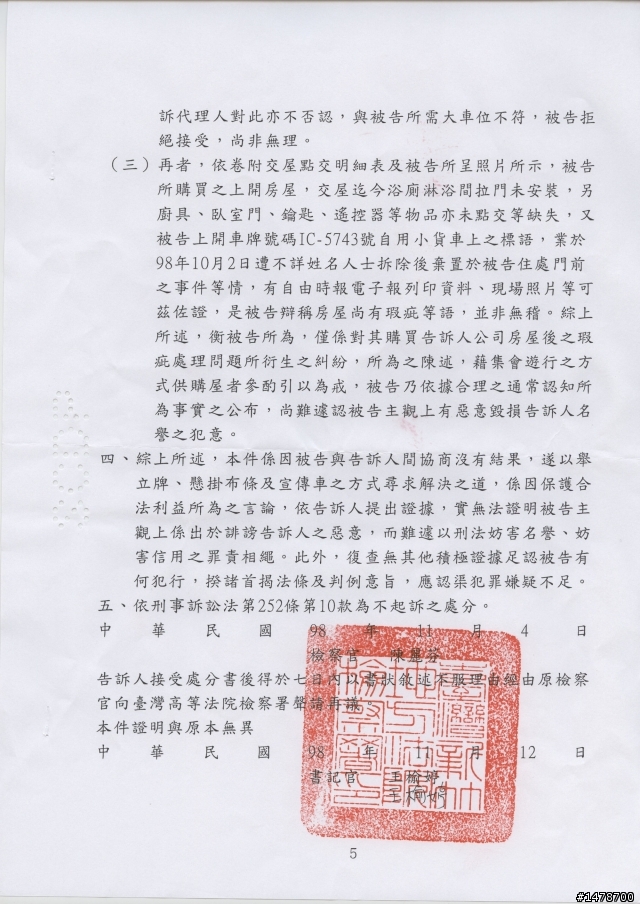 訴代理人對此亦不否認，與被告所需大車位不符，被告拒
絕接受，尚非無理。
（三）再者，依卷附交屋點交明細表及被告所呈照片所示，被告
所購買之上開房屋，交屋迄今浴廁淋浴間拉門未安裝，另
廚具、臥室門、鑰匙、遙控器等物品亦未點交等缺失，又
被告上開車牌號碼IC-5743號自用小貨車上之標語，業於
98年10月2日遭不詳姓名人士拆除後棄置於被告住處門前
之事件等情，有自由時報電子報列印資料、現場照片等可
茲佐證，是被告辯稱房屋尚有瑕疵等語，並非無稽。綜上
所述，衡被告所為，僅係對其購買告訴人公司房屋後之瑕
疵處理問題所衍生之糾紛，所為之陳述，藉集會遊行之方
式供購屋者參酌引以為戒，被告乃依據合理之通常認知所
為事實之公布，尚難遽認被告主觀上有惡意毀損告訴人名
譽之犯意。
四、綜上所述，本件係因被告與告訴人間協商沒有結果，遂以舉
立牌、懸掛布條及宣傳車之方式尋求解決之道，係因保護合
法利益所為之言論，依告訴人提出證據，實無法證明被告主
觀上係出於誹謗告訴人之惡意，而難遽以刑法妨害名譽、妨
害信用之罪責相繩。此外，復查無其他積極證據足認被告有
何犯行，揆諸首揭法條及判例意旨，應認渠犯罪嫌疑不足。
五、依刑事訴訟法第252條第10款為不起訴之處分。
中 華 民 國 98 年 11 月 4 日
檢察官 陳
告訴人接受處分書後得於七日內以書狀敘述不服理由經由原檢察
官向臺灣高等法院檢察署聲請再議。
本件證明與原本無異
中 華 民 國 98 年 11 月 12 日
書記官 王榆婷
5
#1478700